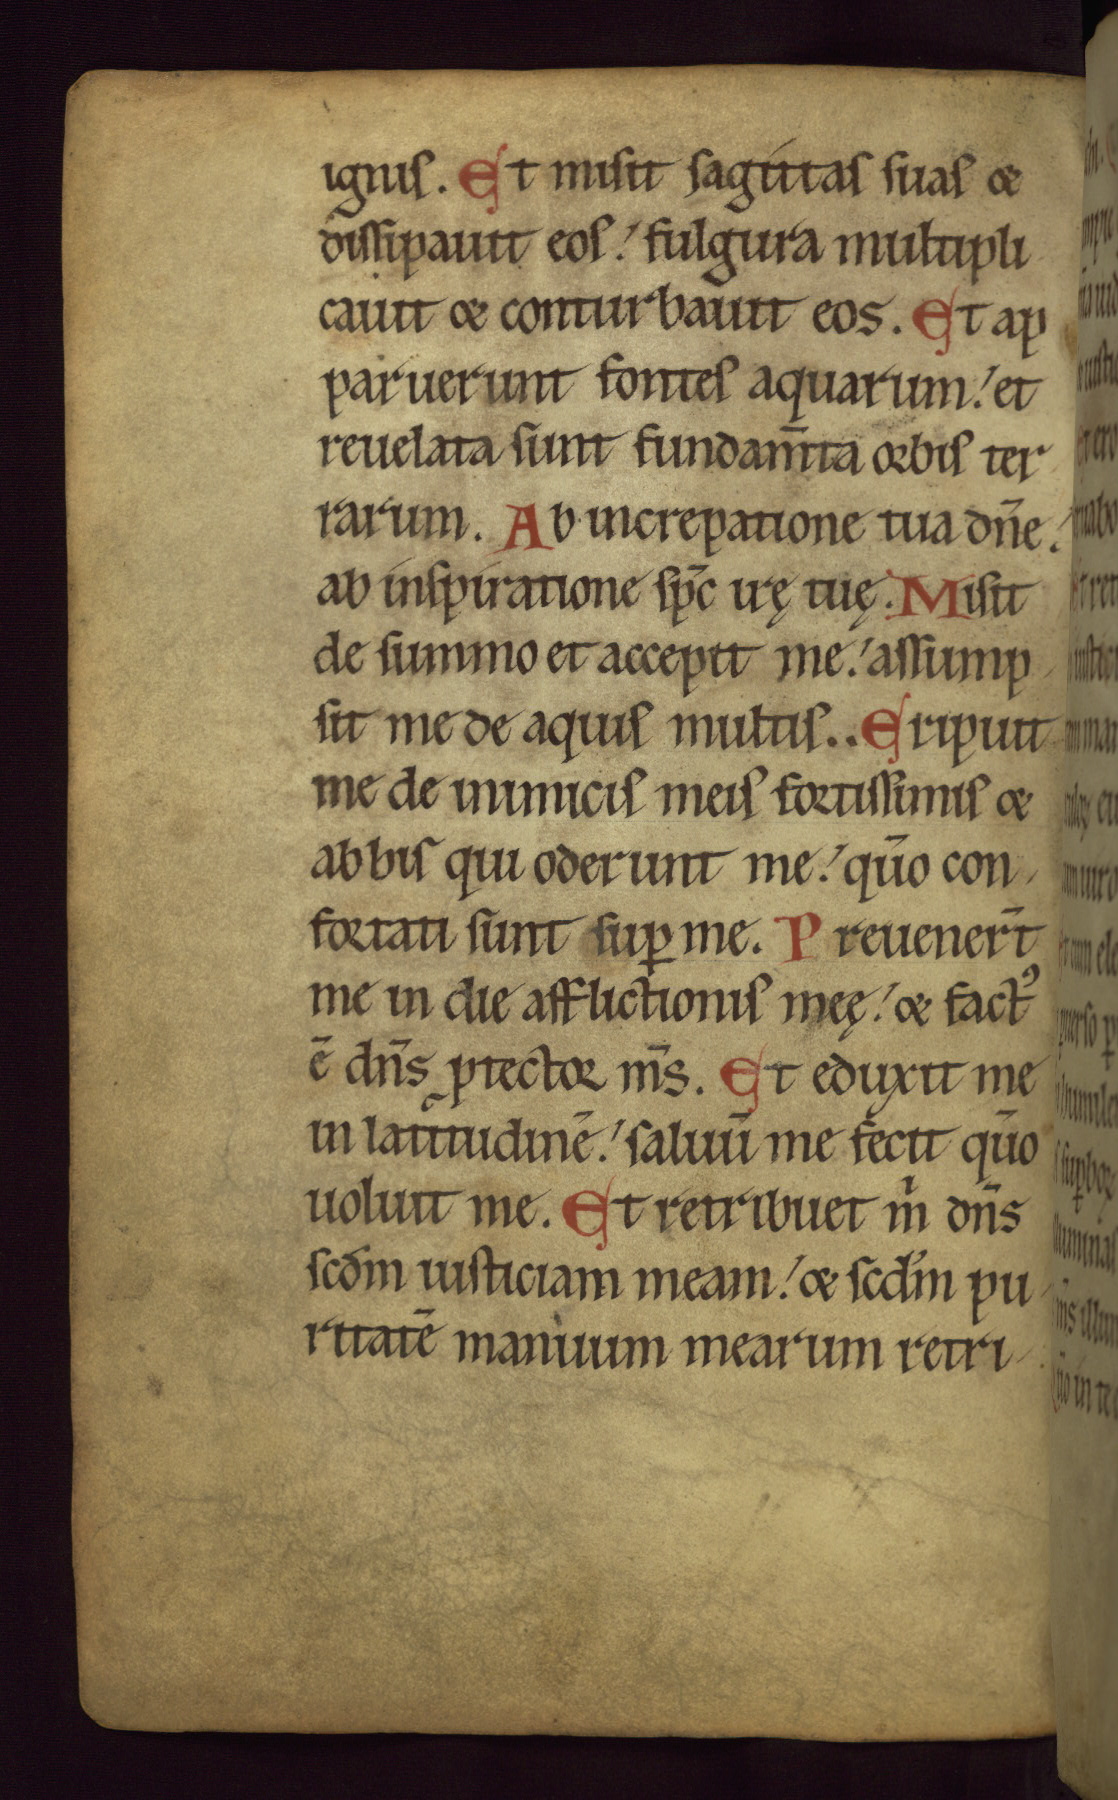 ignis. Et misit sagittas suas &
dissipauit eos! fulgura multipli
cauit & conturbauit eos. Et ap
paruerunt fontes aquarum! et
reuelata sunt fundam̄ta orbis ter
rarum. Ab increpatione tua dn̄e!
ab inspiratione sp̄c irę tuę. Misit
de summo et accepit me! assump
sit me de aquis multis.. Eripuit
me de inimicis meis fortissimis &
ab his qui oderunt me! qūo con
fortati sunt sup̱ me. Preuener̄t
me in die afflictionis meę! & factꝰ
ē dn̄s ꝓtector m̄s. Et eduxit me
in latitudinē! saluū me fecit qūo
uoluit me. Et retribuet m̍ dn̄s
scđm iusticiam meam! & scđm pu
ritatē manuum mearum retri